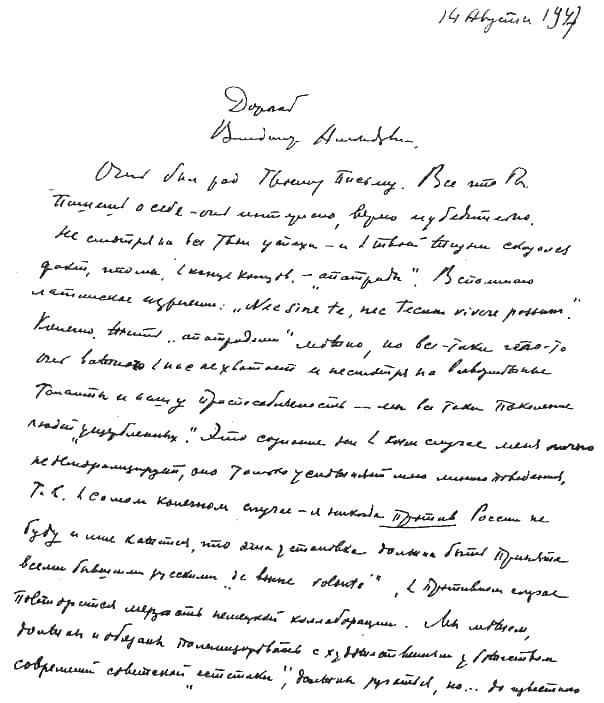 14 Августа 1947
Дорогой
Владимир
Очень был рад Твоему письму. Все что Ты
пишешь о себе – очень интересно, верно и убедительно.
Не смотря на все Твои успехи – и в твоей жизни сказался
факт, что мы, в конце концов, – „апатриды“. Вспоминаю
латинское изречение: „Nec sine te, nec tecum vivere possum“.
Конечно, жить „апатридом“ можно, но все-таки чего-то
очень важного в нас не хватает и несмотря на всевозможные
таланты и нашу приспособляемость – мы все таки поколение
людей „ущербленных“. Это сознание ни в коем случае меня лично
не деморализирует, оно только устанавливает мою линию поведения,
т. к. в самом конечном случае – я никогда против России не
буду и мне кажется, что эта установка должна быть принята
всеми бывшими русскими „de bonne volonté“, в противном случае
повторится мерзость немецкой коллаборации. Мы можем,
должны и обязаны полемизировать с художественным убожеством
современной советской „эстетики“, должны ругаться, но... до известного